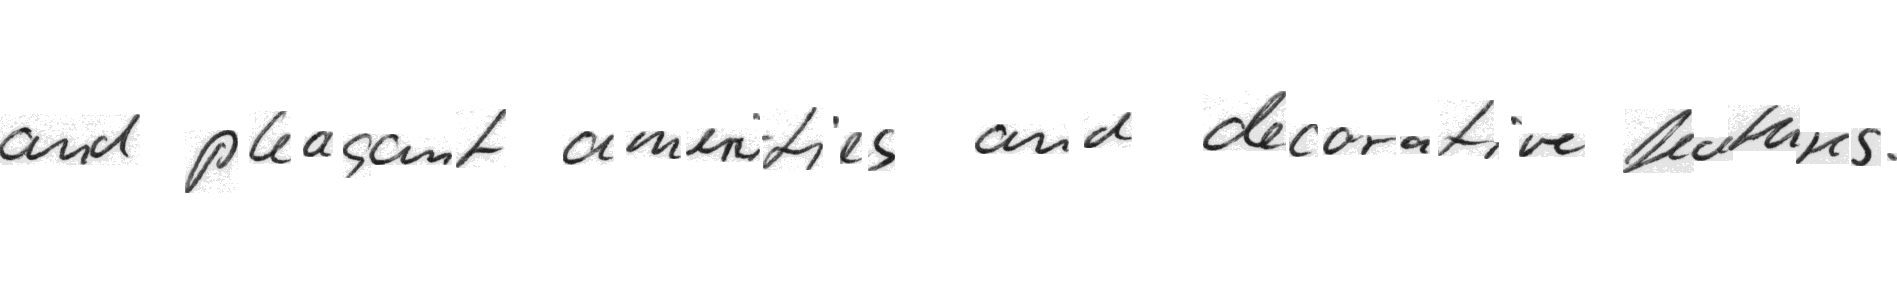 and pleasant amenities and decorative features.